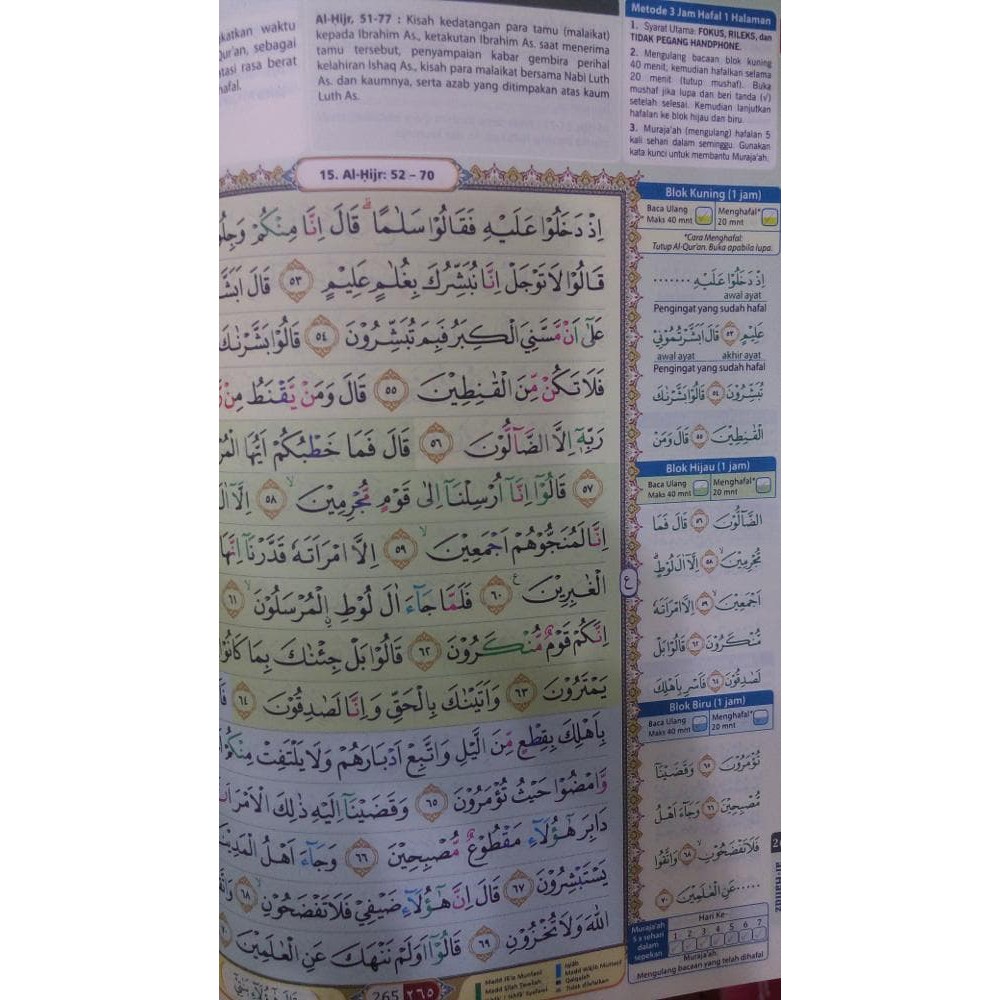 katkan waktu
Qur'an, sebagai
tasi rasa berat
afal.
Al-Ḥijr, 51-77 : Kisah kedatangan para tamu (malaikat)
kepada Ibrahim As., ketakutan Ibrahim As. saat menerima
tamu tersebut, penyampaian kabar gembira perihal
kelahiran Ishaq As., kisah para malaikat bersama Nabi Luth
As. dan kaumnya, serta azab yang ditimpakan atas kaum
Luth As.
Metode 3 Jam Hafal 1 Halaman
1. Syarat Utama: FOKUS, RILEKS, dan
TIDAK PEGANG HANDPHONE.
2. Mengulang bacaan blok kuning
40 menit, kemudian hafalkan selama
20 menit (tutup mushaf). Buka
mushaf jika lupa dan beri tanda (√)
setelah selesai. Kemudian lanjutkan
hafalan ke blok hijau dan biru.
3. Muraja'ah (mengulang) hafalan 5
kali sehari dalam seminggu. Gunakan
kata kunci untuk membantu Muraja'ah.
15. Al-Ḥijr: 52 – 70
اِذْ دَخَلُوْا عَلَيْهِ فَقَالُوْا سَلٰمًاۗ قَالَ اِنَّا مِنْكُمْ وَجِلُوْ
قَالُوْا لَا تَوْجَلْ اِنَّا نُبَشِّرُكَ بِغُلٰمٍ عَلِيْمٍ ٥٣ قَالَ اَبَشَّ
عَلٰٓى اَنْ مَّسَّنِيَ الْكِبَرُ فَبِمَ تُبَشِّرُوْنَ ٥٤ قَالُوْا بَشَّرْنٰكَ
فَلَا تَكُنْ مِّنَ الْقٰنِطِيْنَ ٥٥ قَالَ وَمَنْ يَّقْنَطُ مِنْ رَّ
رَبِّهٖٓ اِلَّا الضَّاۤلُّوْنَ ٥٦ قَالَ فَمَا خَطْبُكُمْ اَيُّهَا الْمُرْ
٥٧ قَالُوْٓا اِنَّآ اُرْسِلْنَآ اِلٰى قَوْمٍ مُّجْرِمِيْنَۙ ٥٨ اِلَّآ اٰلَ
اِنَّا لَمُنَجُّوْهُمْ اَجْمَعِيْنَۙ ٥٩ اِلَّا امْرَاَتَهٗ قَدَّرْنَآ اِنَّهَا
الْغٰبِرِيْنَ ࣖ ٦٠ فَلَمَّا جَاۤءَ اٰلَ لُوْطِ ِۨالْمُرْسَلُوْنَۙ ٦١
اِنَّكُمْ قَوْمٌ مُّنْكَرُوْنَ ٦٢ قَالُوْا بَلْ جِئْنٰكَ بِمَا كَانُوْا
يَمْتَرُوْنَ ٦٣ وَاَتَيْنٰكَ بِالْحَقِّ وَاِنَّا لَصٰدِقُوْنَ ٦٤ فَا
بِاَهْلِكَ بِقِطْعٍ مِّنَ الَّيْلِ وَاتَّبِعْ اَدْبَارَهُمْ وَلَا يَلْتَفِتْ مِنْكُمْ
وَّامْضُوْا حَيْثُ تُؤْمَرُوْنَ ٦٥ وَقَضَيْنَآ اِلَيْهِ ذٰلِكَ الْاَمْرَ اَنَّ
دَابِرَ هٰٓؤُلَاۤءِ مَقْطُوْعٌ مُّصْبِحِيْنَ ٦٦ وَجَاۤءَ اَهْلُ الْمَدِيْنَ
يَسْتَبْشِرُوْنَ ٦٧ قَالَ اِنَّ هٰٓؤُلَاۤءِ ضَيْفِيْ فَلَا تَفْضَحُوْنِۙ ٦٨ وَاتَّ
اللّٰهَ وَلَا تُخْزُوْنِ ٦٩ قَالُوْٓا اَوَلَمْ نَنْهَكَ عَنِ الْعٰلَمِيْنَ
265 ٢٦٥
Blok Kuning (1 jam)
Baca Ulang Maks 40 mnt
Menghafal* 20 mnt
*Cara Menghafal:
Tutup Al-Qur'an. Buka apabila lupa.
اِذْ دَخَلُوْا عَلَيْهِ ........
awal ayat
Pengingat yang sudah hafal
عَلِيْمٍ ٥٣ قَالَ اَبَشَّرْتُمُوْنِيْ
awal ayat akhir ayat
Pengingat yang sudah hafal
تُبَشِّرُوْنَ ٥٤ قَالُوْا بَشَّرْنٰكَ
الْقٰنِطِيْنَ ٥٥ قَالَ وَمَنْ
Blok Hijau (1 jam)
Baca Ulang Maks 40 mnt
Menghafal* 20 mnt
الضَّاۤلُّوْنَ ٥٦ قَالَ فَمَا
مُّجْرِمِيْنَۙ ٥٨ اِلَّآ اٰلَ لُوْطٍۗ
اَجْمَعِيْنَۙ ٥٩ اِلَّا امْرَاَتَهٗ
مُّنْكَرُوْنَ ٦٢ قَالُوْا بَلْ
لَصٰدِقُوْنَ ٦٤ فَاَسْرِ بِاَهْلِكَ
Blok Biru (1 jam)
Baca Ulang Maks 40 mnt
Menghafal* 20 mnt
تُؤْمَرُوْنَ ٦٥ وَقَضَيْنَآ
مُّصْبِحِيْنَ ٦٦ وَجَاۤءَ اَهْلُ
فَلَا تَفْضَحُوْنِۙ ٦٨ وَاتَّقُوا
.....عَنِ الْعٰلَمِيْنَ ٧٠
Muraja'ah 5 x sehari dalam sepekan
Hari Ke-
1 2 3 4 5 6 7
Muraja'ah:
Mengulang bacaan yang telah dihafal